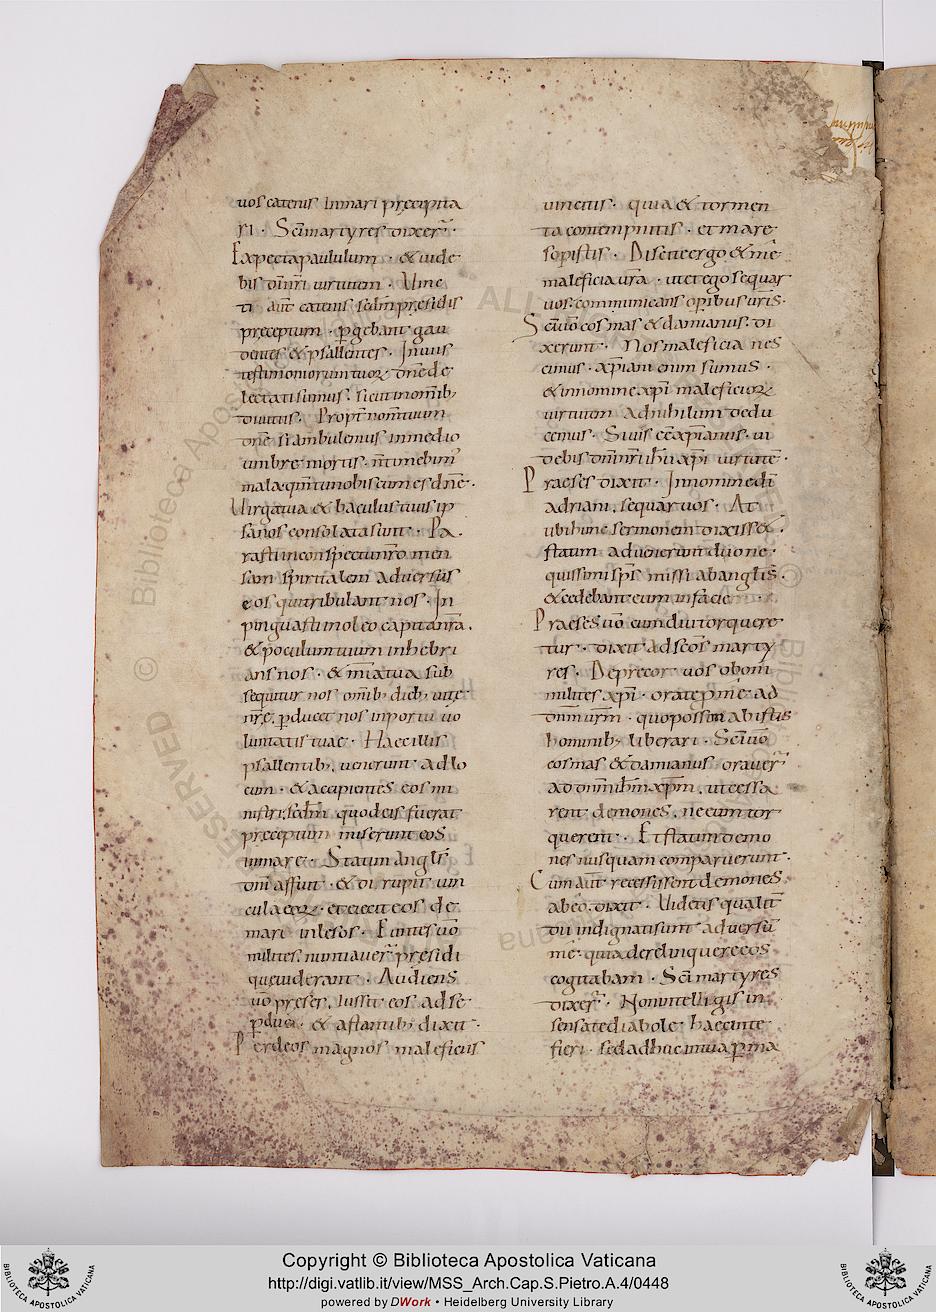 uos catenis in mari precipita
ri · Sc̅i martyres dixer̅ ·
Expecta paululum · & uide
bis dn̅i nr̅i uirtutem · Uinc
ti · aut̅ catenis sedm̅ presidis
preceptum · pgebant gau
dentes & psallentes · In uiis
testimoniorum tuoꝝ dn̅e de
lectati sumus · sicut in om̅ib;
diuitiis · Propt̅ nom̅ tuum
dn̅e si ambulemus in medio
umbre mortis · n̅ timebim̅
mala qm̅ tu nobiscum es dn̅e ·
Uirga tua & baculus tuus ip
sa nos consolata sunt · Pa
rasti in conspectu nr̅o men
sam spiritalem aduersus
eos qui tribulant nos · In
pinguasti in oleo capita nr̅a ·
& poculum tuum inhebri
ans nos · & mi̅a tua sub
sequitur nos om̅ib; dieb; uite
nr̅e · pducet nos in portu uo
luntatis tuae · Haec illis
psallentib; uenerunt ad lo
cum · & accipientes eos mi
nistri sedm̅ quod eis fuerat
preceptum miserunt eos
in mare · Statum angls̅
dn̅i affuit · & dirrupit uin
cula eoꝝ · et eiecit eos de
mari inlesos · Euntes uo̅
milites nuntiauer̅ presidi
que uiderant · Audiens
uo̅ preses · iussit eos ad se
pduci · & astantib; dixit ·
Per deos magnos maleficiis
uincitis · quia & tormen
ta contempnitis · et mare
sopistis · Discite ergo & me̅
maleficia ur̅a · ut et ego sequar
uos communicans opibus ur̅is ·
Sc̅i uo̅ cosmas & damianus di
xerunt · Nos maleficia nes
cimus · xp̅iani enim sumus ·
& in nomine xp̅i maleficioꝝ
uirtutem ad nihilum dedu
cimus · Si uis ee̅ xp̅ianus · ui
debis dn̅i nr̅i ih̅u xp̅i uirtute̅ ·
Praeses dixit · In nomine di̅
adriani · sequar uos · At
ubi hunc sermonem dixiss& ·
statum aduenerunt duo ne
quissimi sp̅s missi ab anglis̅ ·
& cedebant eum in facie
Praeses uo̅ cum diu torquere
tur · dixit ad sc̅os marty
res · Deprecor uos o boni
milites xp̅i · orate p me̅ ad
dn̅m ur̅m · quo possim ab istis
hominib; liberari · Sc̅i uo̅
cosmas & damianus orauer̅
ad dn̅m ih̅m xp̅m · ut cessa
rent demones · ne eum tor
querent · Et statum demo
nes nusquam comparuerunt ·
Cum aut̅ recessissent demones
ab eo · dixit · Uidetis qualit̅
dii indignati sunt aduersu̅
me̅ · quia derelinquere eos
cogitabam · Sc̅i martyres
dixer̅ · Non intelligis in
sensate diabole haec inte
fieri · sed adhuc in tua pma
Copyright © Biblioteca Apostolica Vaticana
http://digi.vatlib.it/view/MSS_Arch.Cap.S.Pietro.A.4/0448
powered by DWork • Heidelberg University Library